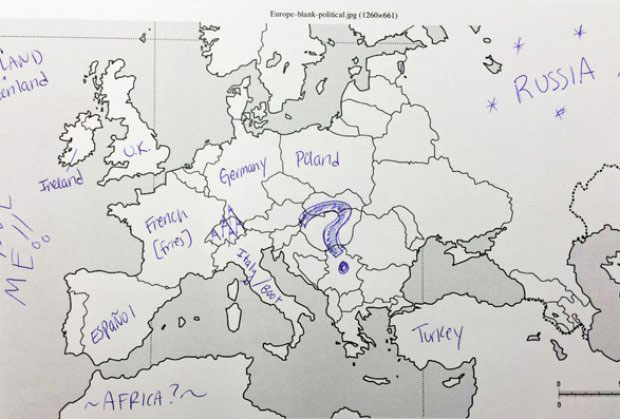 Europe-blank-political.jpg (1260×661)
LAND
enland
* * RUSSIA * *
U.K.
Ireland
Germany
Poland
French
[fries]
?
ME!!
Italy/Boot
Español
Turkey
~AFRICA?~
0
0